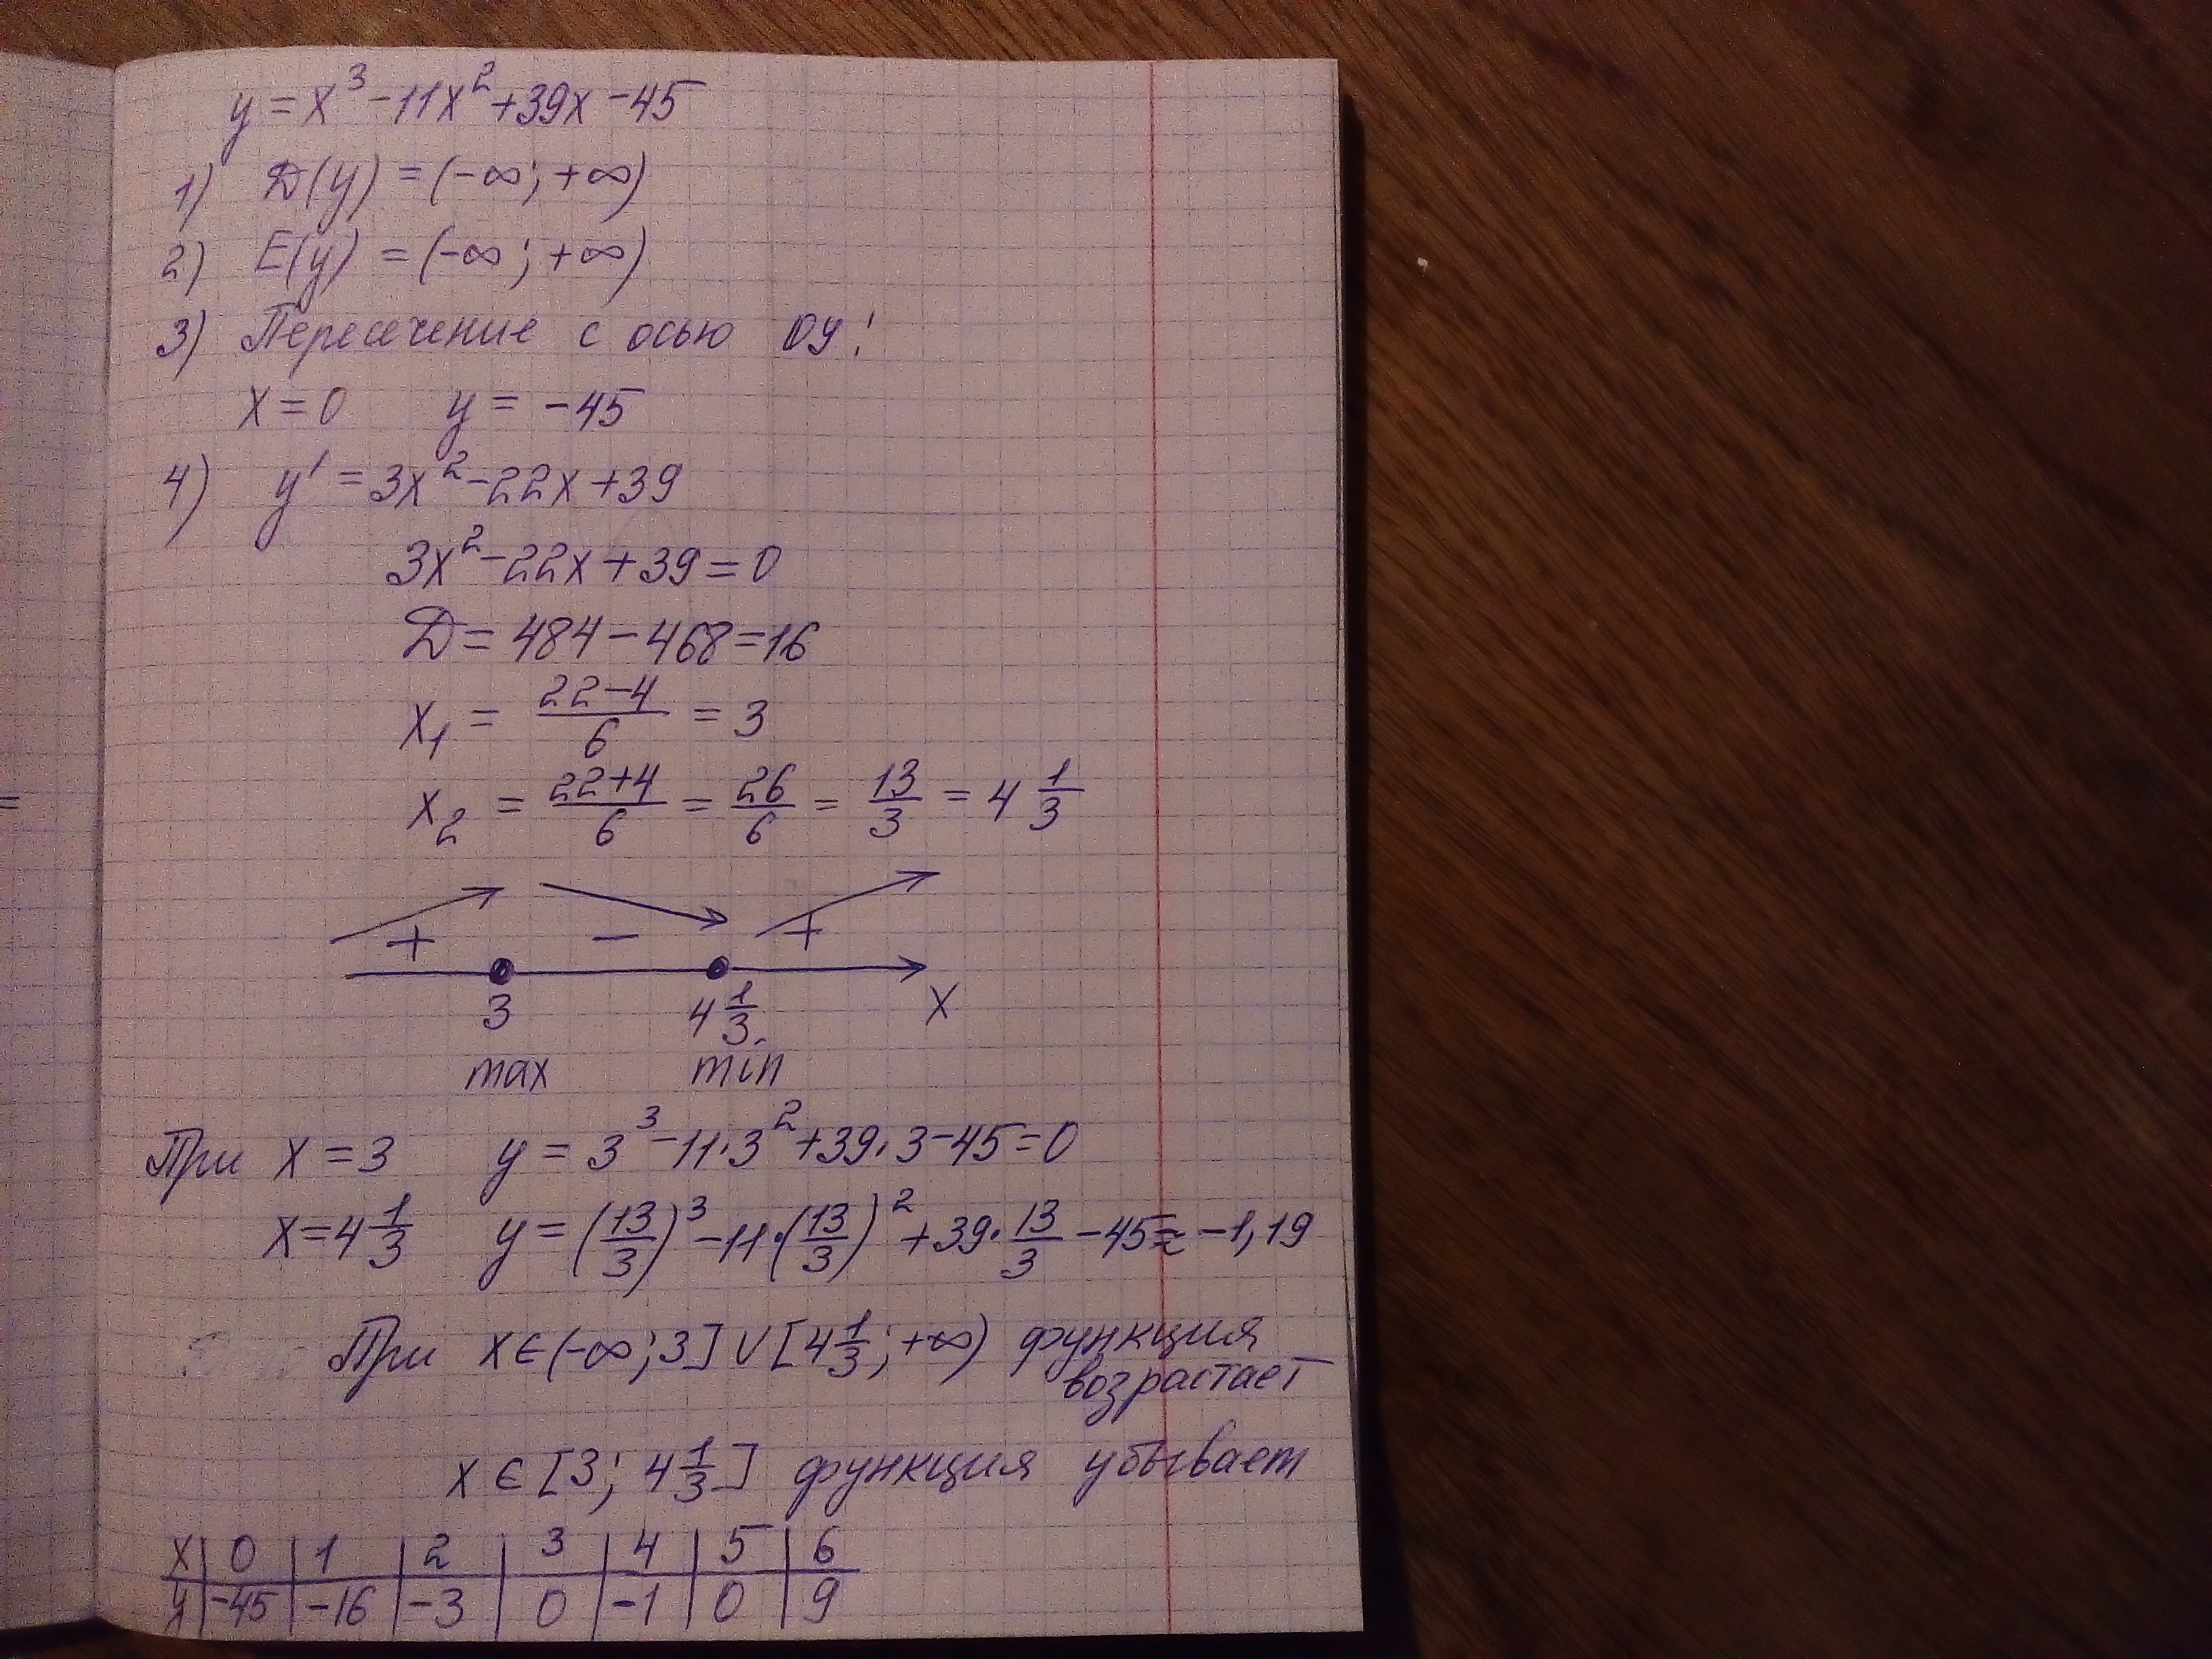 y = x³ - 11x² + 39x - 45
1) D(y) = (-∞; +∞)
2) E(y) = (-∞; +∞)
3) Пересечение с осью Oy:
x = 0 y = -45
4) y' = 3x² - 22x + 39
3x² - 22x + 39 = 0
D = 484 - 468 = 16
x₁ = (22-4)/6 = 3
x₂ = (22+4)/6 = 26/6 = 13/3 = 4 1/3
+ - +
3 4 1/3 x
max min
При x = 3 y = 3³ - 11·3² + 39·3 - 45 = 0
x = 4 1/3 y = (13/3)³ - 11·(13/3)² + 39·13/3 - 45 ≈ -1,19
При x ∈ (-∞; 3] ∪ [4 1/3; +∞) функция
возрастает
x ∈ [3; 4 1/3] функция убывает
x | 0 | 1 | 2 | 3 | 4 | 5 | 6
y | -45 | -16 | -3 | 0 | -1 | 0 | 9
=